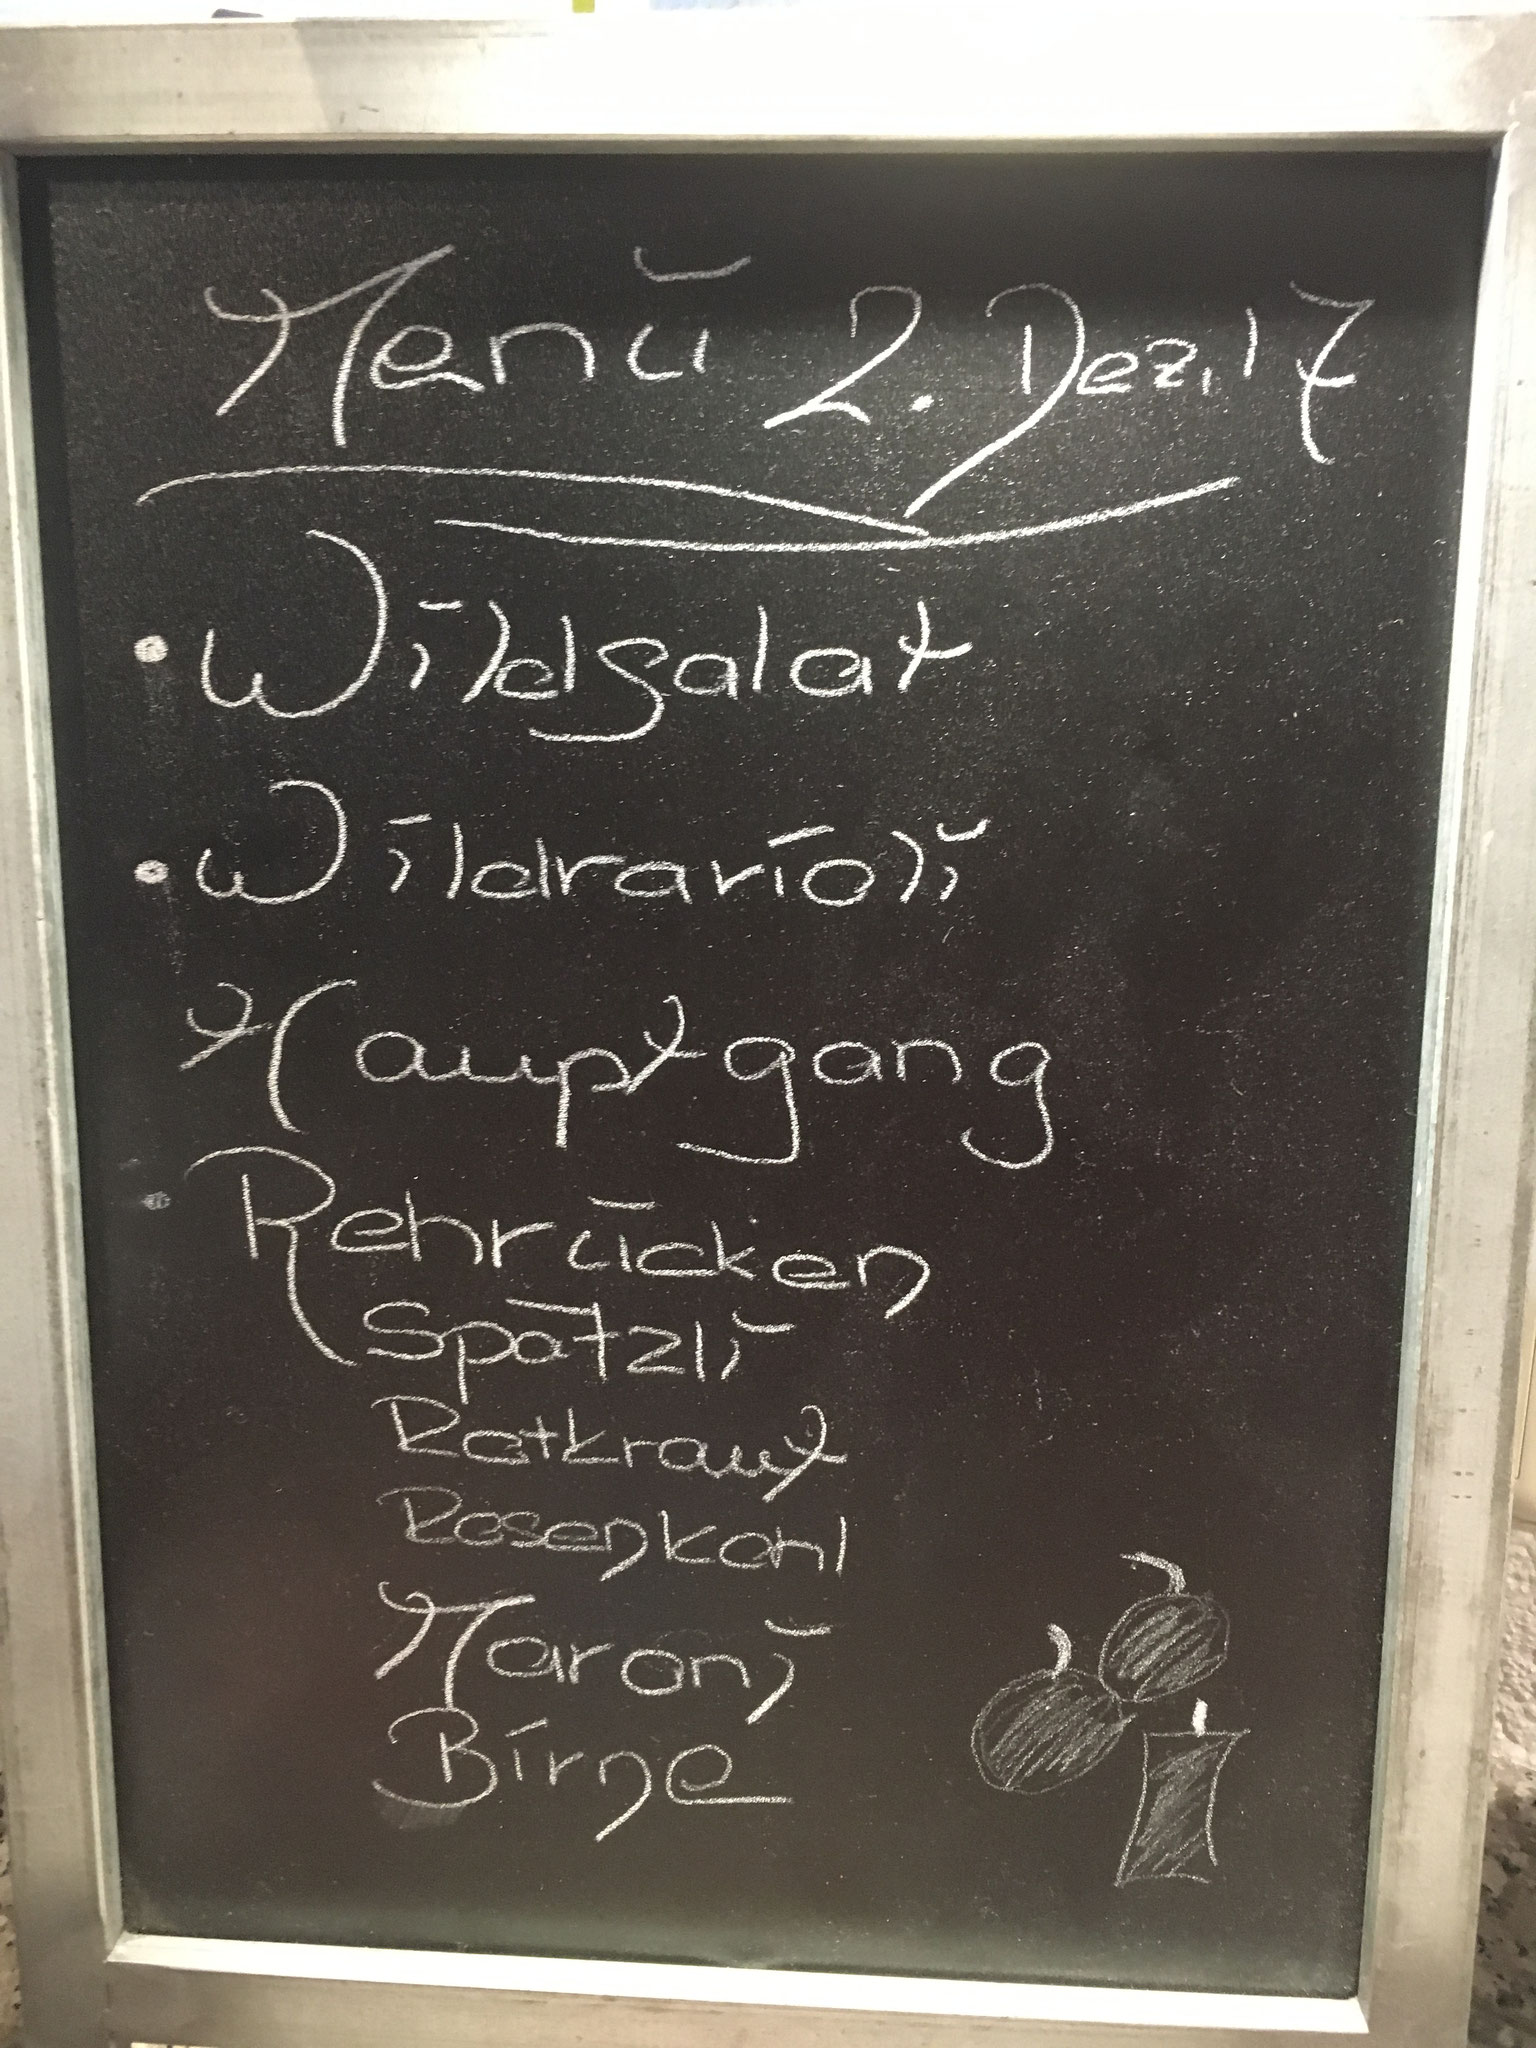 Menü 2. Dez. 17
• Wildsalat
• Wildravioli
Hauptgang
Rehrücken
Spätzli
Rotkraut
Rosenkohl
Maroni
Birne